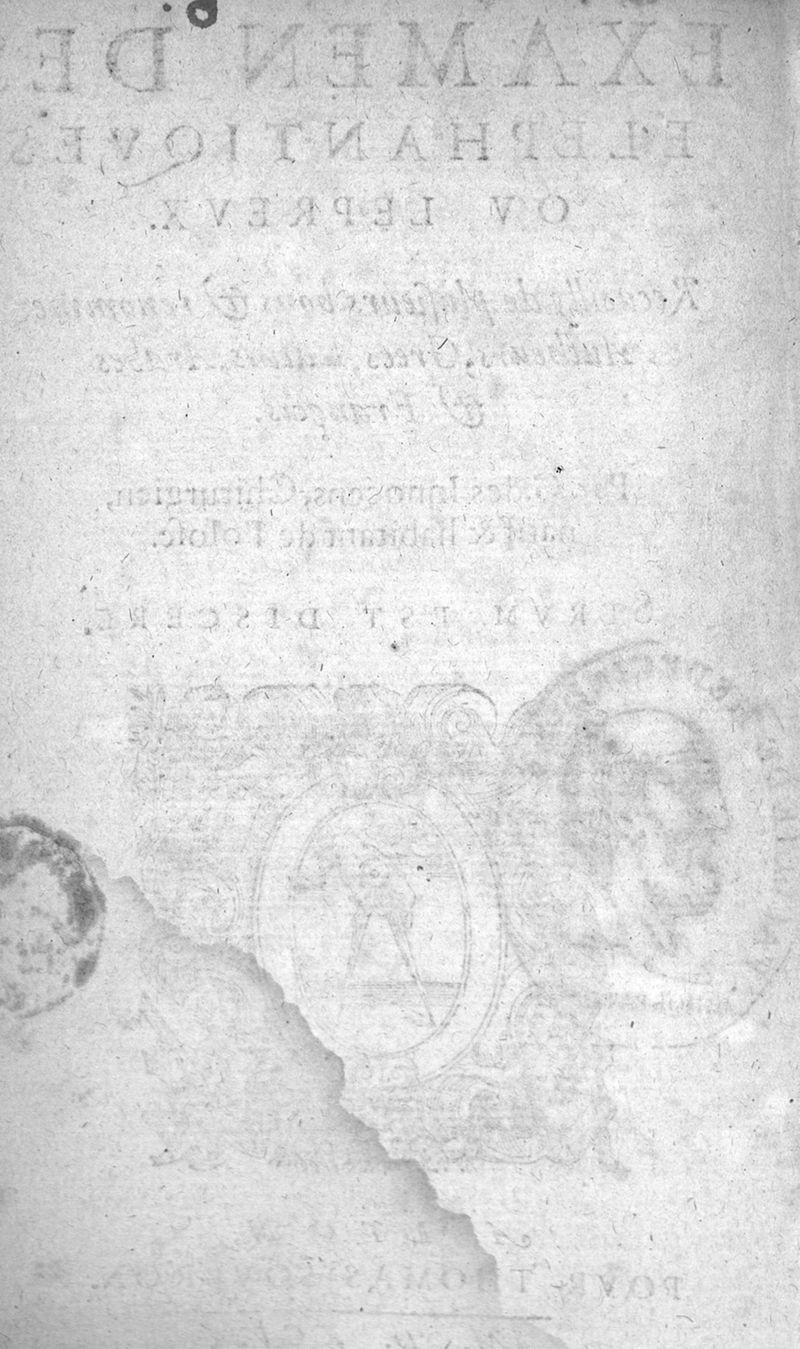 EXAMEN DES
ELEPHANTIQVES
OV LEPREVX.
Recueilly de plusieurs bons & renommez
Autheurs, Grecs, Latins, Arabes
& François.
des Innocens, Chirurgien,
natif & habitant de Tolose.
SERVM EST DISCERE.
A LYON,
POVR THOMAS SOVBRON.